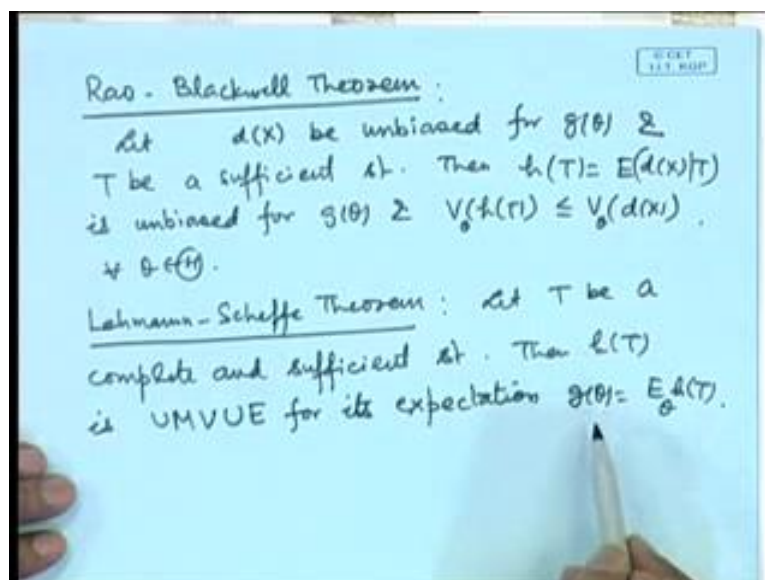 © CET
I.I.T. KGP
Rao - Blackwell Theorem :
Let d(X) be unbiased for g(θ) &
T be a sufficient st. Then h(T) = E(d(X)|T)
is unbiased for g(θ) & V_θ(h(T)) ≤ V_θ(d(X)).
∀ θ ∈ Ⓗ.
Lehmann - Scheffe Theorem : Let T be a
complete and sufficient st. Then h(T)
is UMVUE for its expectation g(θ) = E_θ h(T).